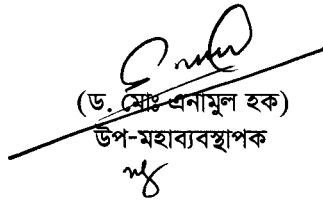 (ড. মোঃ এনামুল হক)
উপ-মহাব্যবস্থাপক